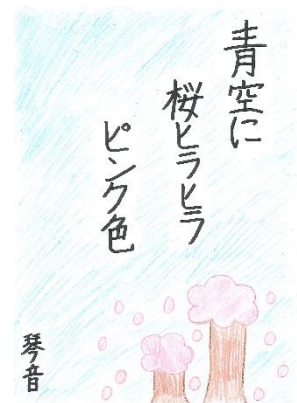 青空に
桜ヒラヒラ
ピンク色
琴音